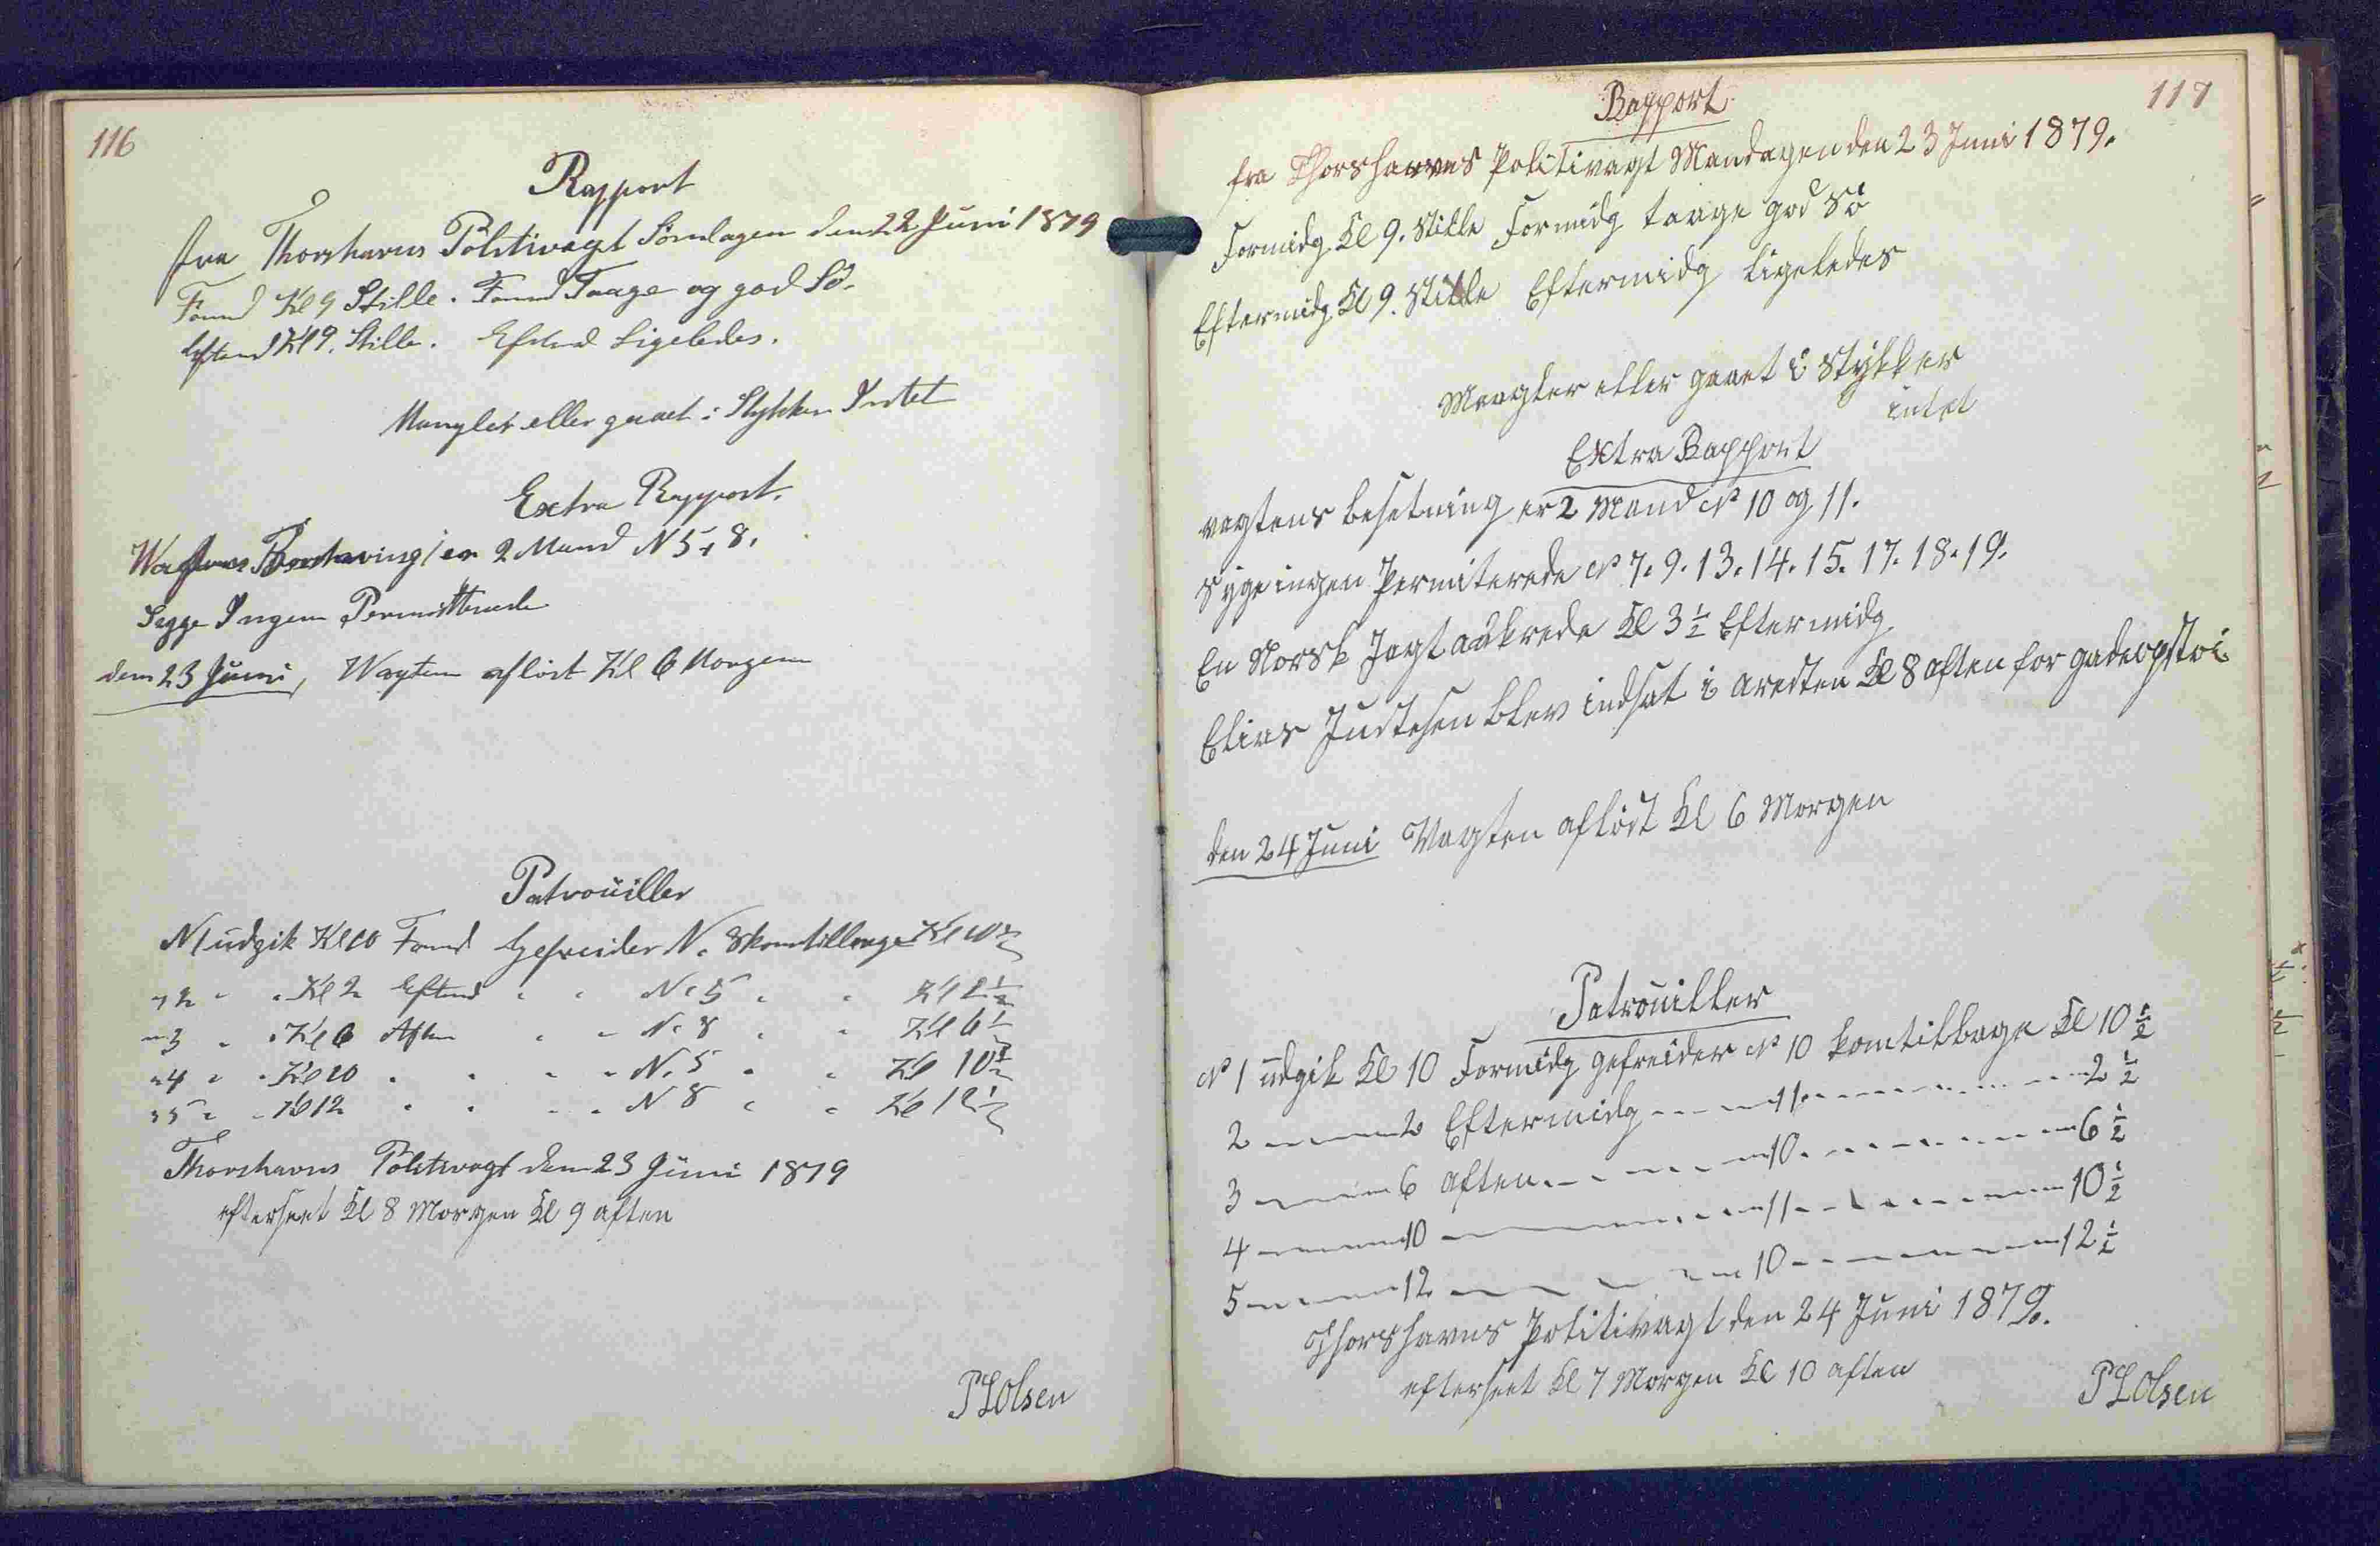 116
Rapport
fra Thorshavns Politivagt Søndagen den 22 Juni 1879
Formd Kl 9 Stille. Formd Taage og god Sö.
Eftmd Kl 9. Stille. Eftmd Ligeledes.
Mangler eller gaaet i Stykker Intet
Extra Rapport.
er 2 Mand N 5 + 8.
Syge Ingen Permitterede
den 23 Juni, Wagten aflöst Kl 6 Morgen
Patrouiller
N 1 udgik Kl 10 Formd Gefreider N. 8 kom tilbage Kl 10½
" 2 " " Kl 2 Eftmd " " N. 5 " " Kl 2½
" 3 " " Kl 6 Aften " " N. 8 " " Kl 6½
" 4 " " Kl 10 " " " " N. 5 " " Kl 10½
" 5 " " Kl 12 " " " " N 8 " " Kl 12½
Thorshavns Politivagt den 23 Juni 1879
efterseet Kl 8 Morgen Kl 9 aften
PLOlsen
117
Rapport
fra Thorshavns Politivagt Mandagen den 23 Juni 1879.
Formidg Kl 9. Stille Formidg taage god Sö
Eftermidg Kl 9. Stille Eftermidg ligeledes
Mangler eller gaaet i Stykker
intet
Extra Rapport
vagtens besetning er 2 Mand No 10 og 11.
Syge ingen Permiterede No 7. 9. 13. 14. 15. 17. 18. 19.
En Norsk Jagt ankrede Kl 3½ Eftermidg
Elias Justesen blev indsat i aresten Kl 8 aften for gadeopstöi
den 24 Juni Vagten aflöst Kl 6 Morgen
Patrouiller
No 1 udgik Kl 10 Formidg gefreider No 10 kom tilbage Kl 10½
2 — 2 Eftermidg — 11 — 2½
3 — 6 aften — 10 — 6½
4 — 10 — 11 — 10½
5 — 12 — 10 — 12½
Thorshavns Politivagt den 24 Juni 1879.
efterseet Kl 7 Morgen Kl 10 aften
PLOlsen